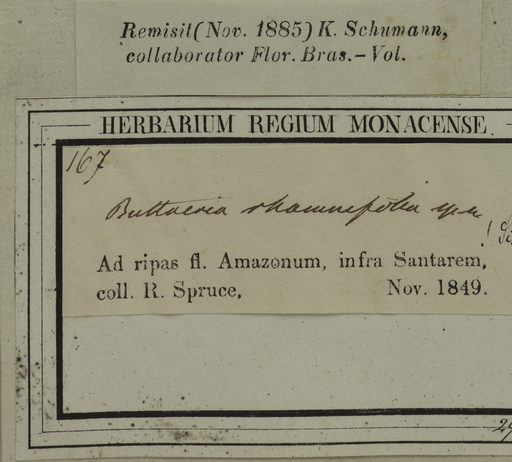 Remisit (Nov. 1885) K. Schumann,
collaborator Flor. Bras. – Vol.
HERBARIUM REGIUM MONACENSE.
167
Buttneria rhamnifolia
Ad ripas fl. Amazonum, infra Santarem,
coll. R. Spruce, Nov. 1849.